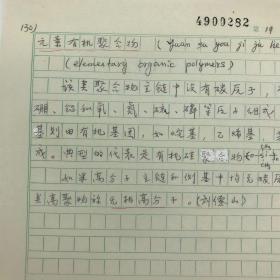 (30)
4900282
第 19
元素有机聚合物 (yuan su you ji ju he
(elementary organic polymers)
该类聚合物主链中没有碳原子,
硼、铝和氧、氮、硫、磷等原子组成,
基则由有机基团,如烷基、乙烯基、
成。典型的代表是有机硅聚合物如
如果高分子主链和侧基中均无碳原
类高聚物称无机高分子。(刘德山)